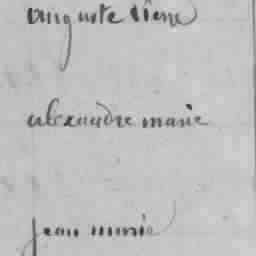 auguste Pierre
alexandre marie
jean marie